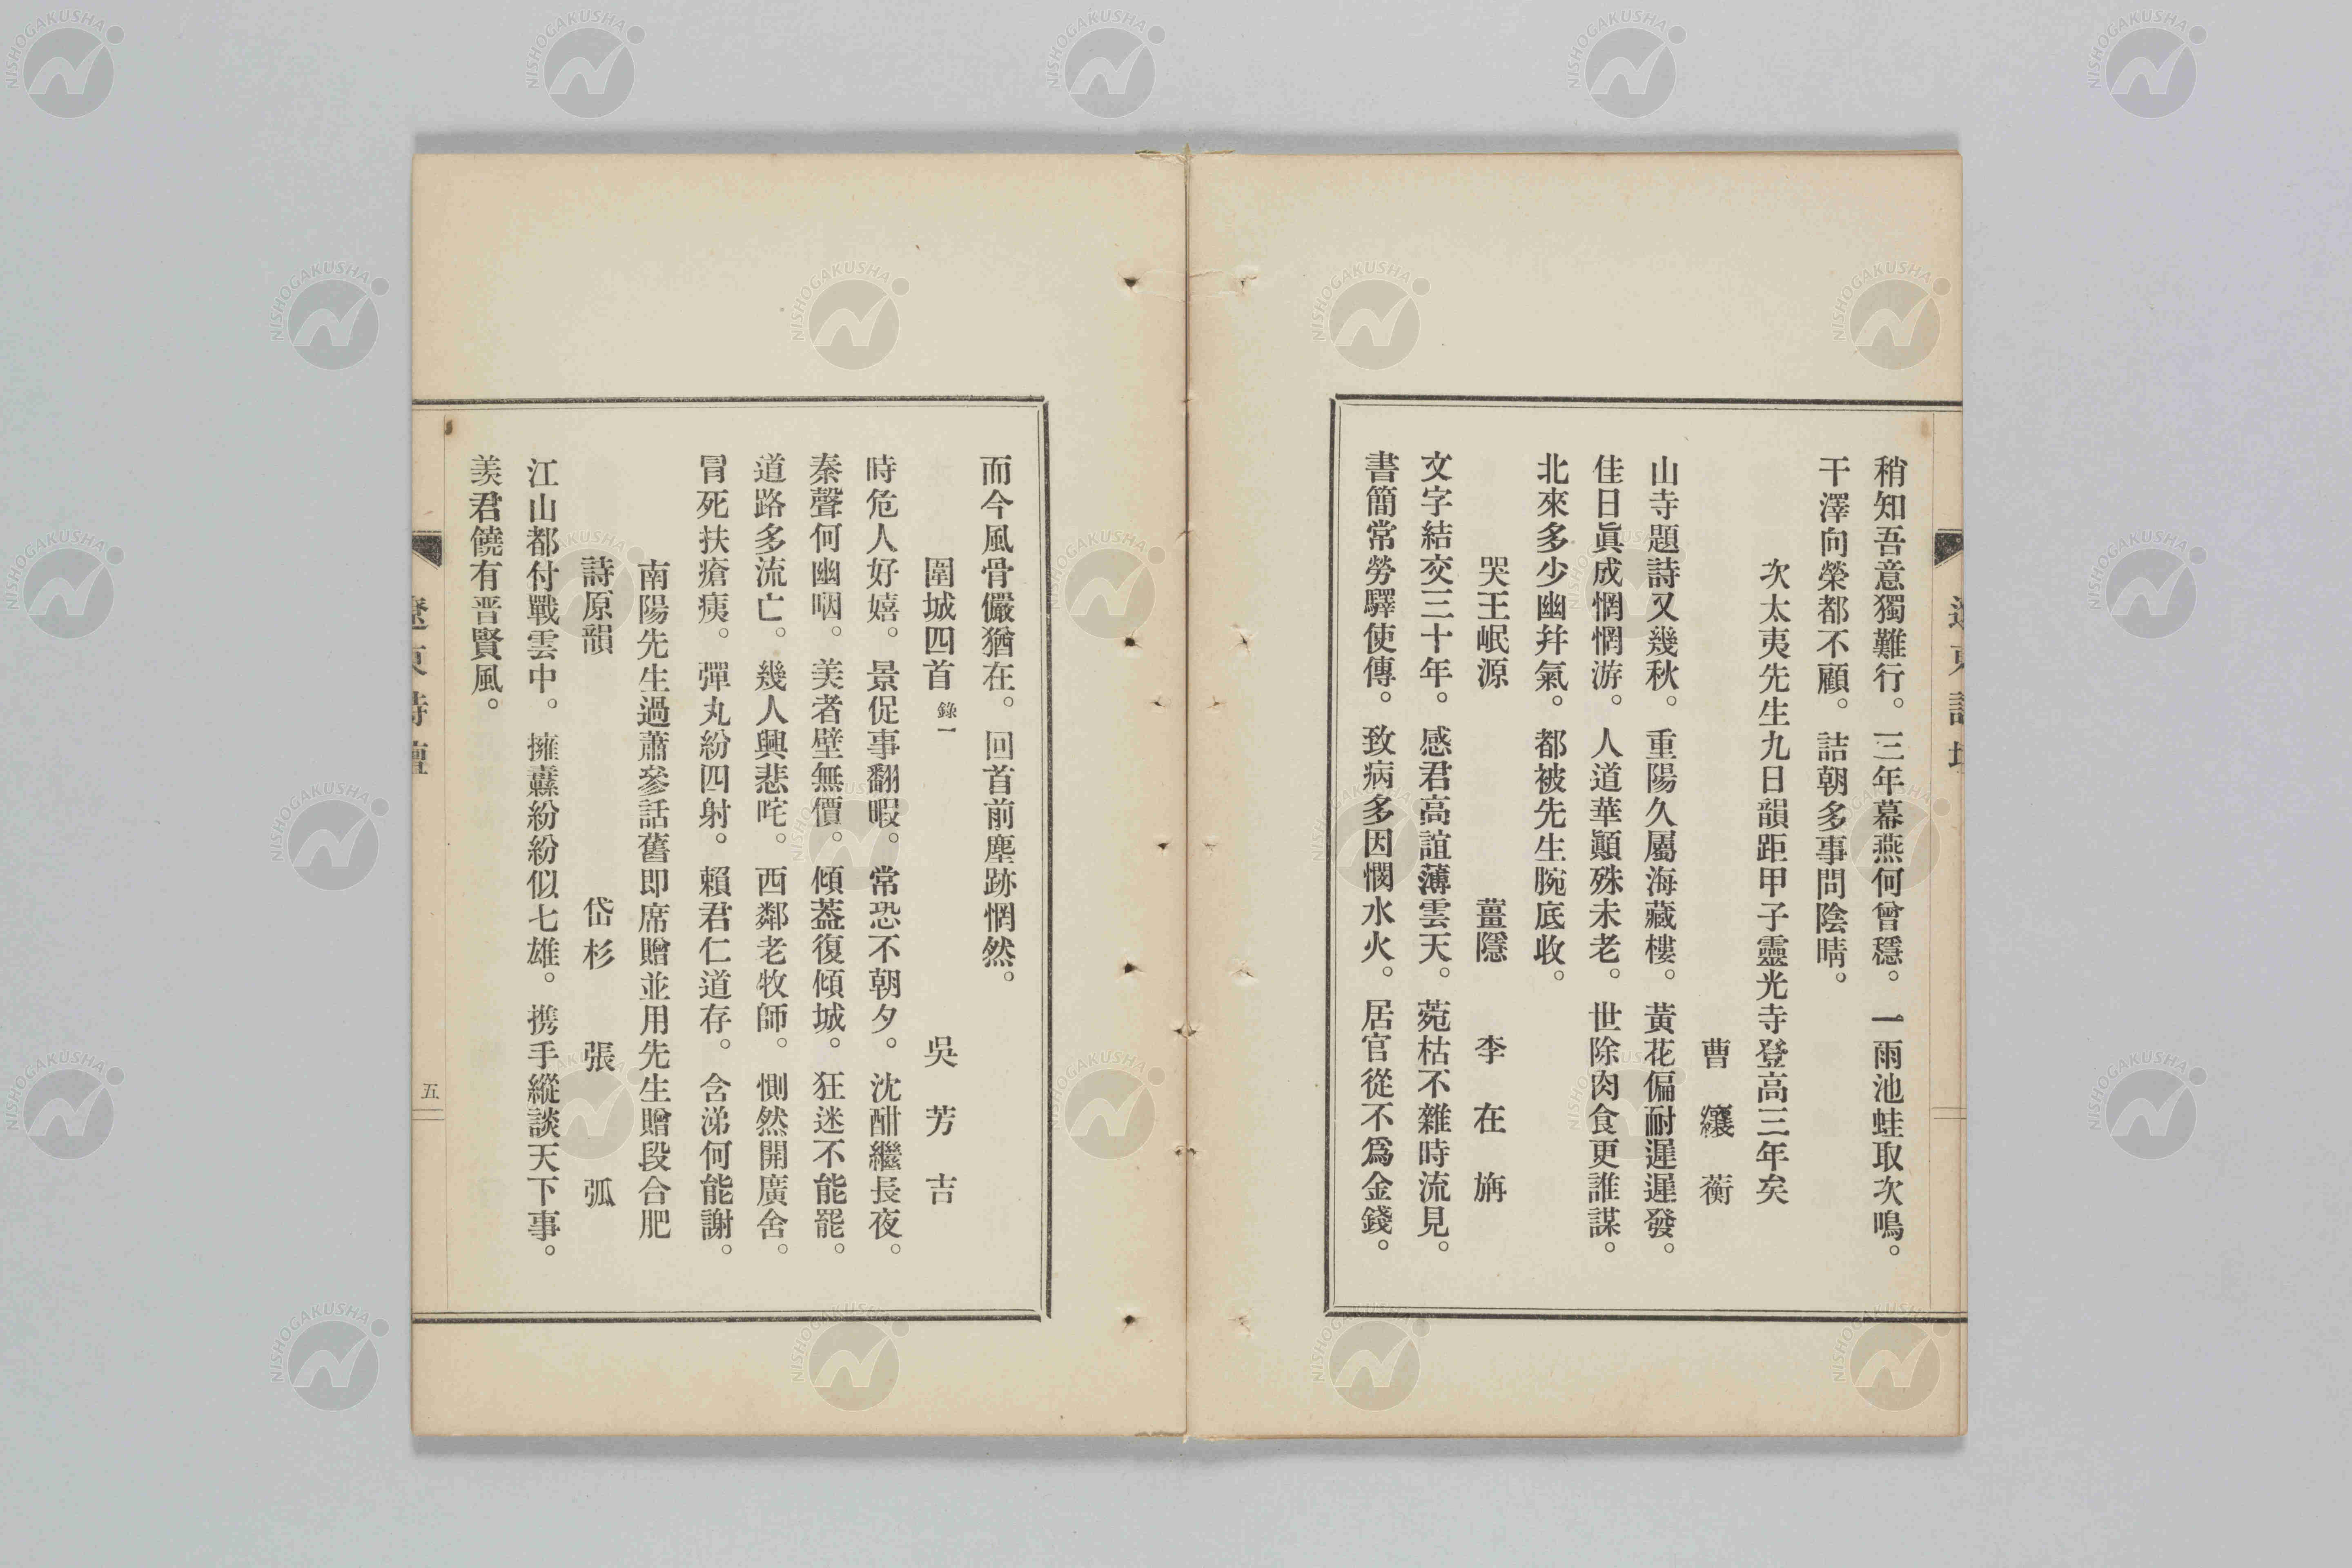 稍知吾意獨難行。三年幕燕何曾穩。一雨池蛙取次鳴。
干澤向榮都不顧。詰朝多事問陰晴。
次太夷先生九日韻距甲子靈光寺登高三年矣
曹纕蘅
山寺題詩又幾秋。重陽久屬海藏樓。黃花偏耐遲遲發。
佳日眞成惘惘游。人道華顚殊未老。世除肉食更誰謀。
北來多少幽幷氣。都被先生腕底收。
哭王岷源 薑隱 李在旃
文字結交三十年。感君高誼薄雲天。菀枯不雜時流見。
書簡常勞驛使傳。致病多因憫水火。居官從不爲金錢。
遼東詩壇
而今風骨儼猶在。回首前塵跡惘然。
圍城四首 錄一 吳芳吉
時危人好嬉。景促事翻暇。常恐不朝夕。沈酣繼長夜。
秦聲何幽咽。美者壁無價。傾葢復傾城。狂迷不能罷。
道路多流亡。幾人興悲咤。西鄰老牧師。惻然開廣舍。
冐死扶瘡痍。彈丸紛四射。賴君仁道存。含涕何能謝。
南陽先生過蕭參話舊即席贈並用先生贈段合肥
詩原韻 岱杉 張弧
江山都付戰雲中。擁纛紛紛似七雄。携手縱談天下事。
羨君饒有晋賢風。
遼東詩壇
五
NISHOGAKUSHA